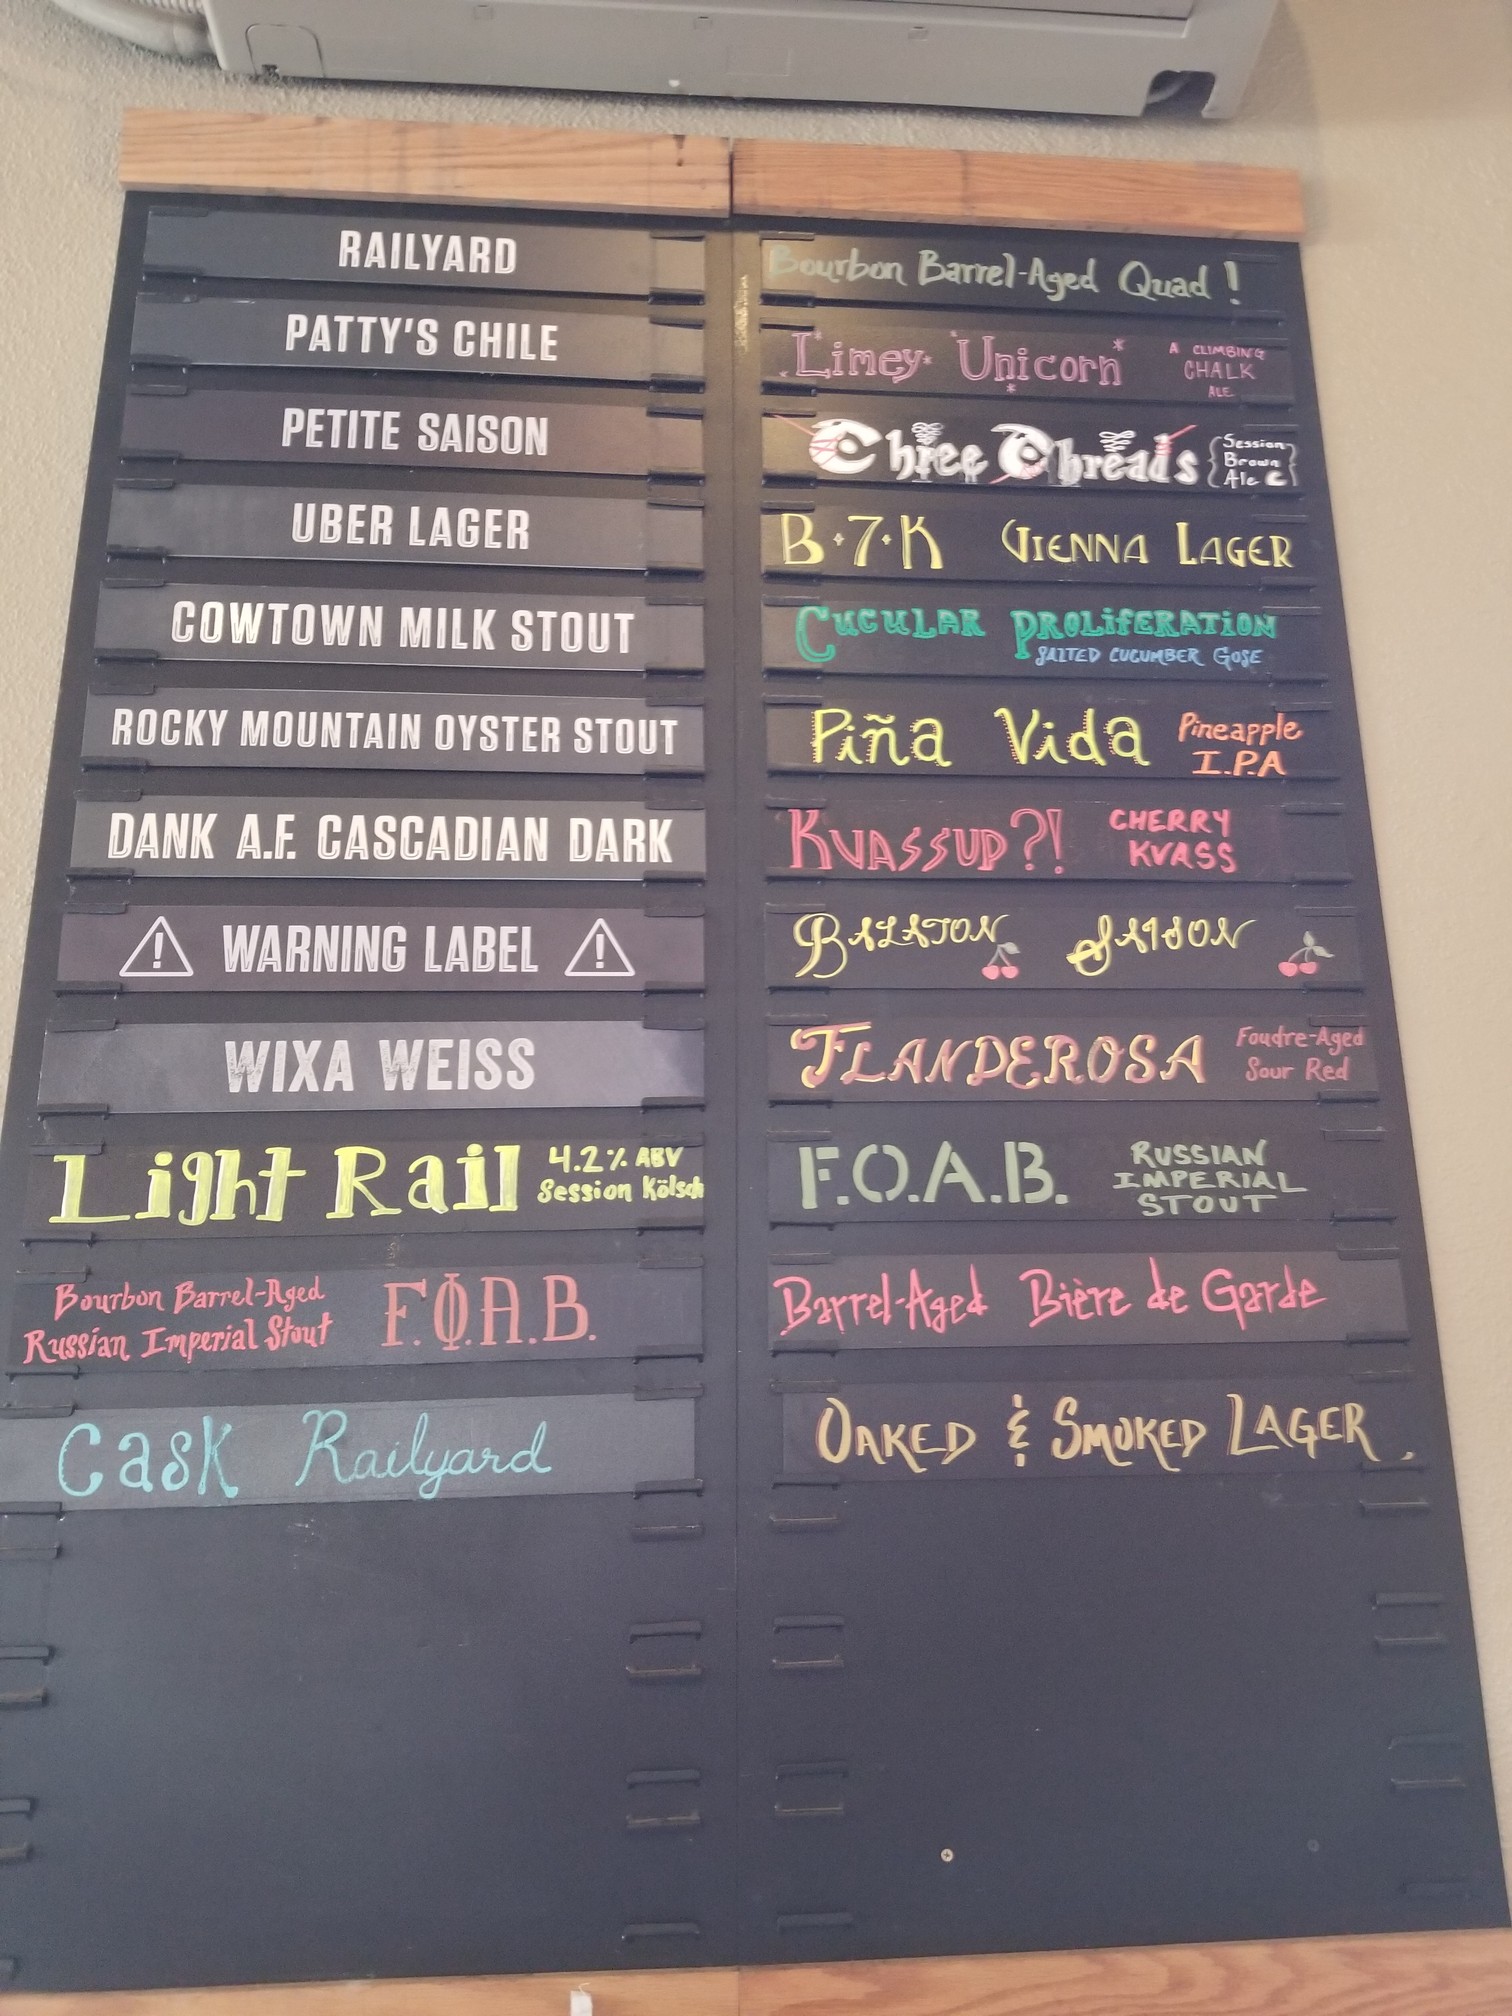 RAILYARD
PATTY'S CHILE
PETITE SAISON
UBER LAGER
COWTOWN MILK STOUT
ROCKY MOUNTAIN OYSTER STOUT
DANK A.F. CASCADIAN DARK
WARNING LABEL
WIXA WEISS
Light Rail
4.2% ABV
Session Kölsch
Bourbon Barrel-Aged
Russian Imperial Stout
F.O.A.B.
Cask Railyard
Bourbon Barrel-Aged Quad!
Limey Unicorn
A CLIMBING
CHALK
ALE
Three Threads
Session
Brown
Ale
B·7·K VIENNA LAGER
CUCULAR PROLIFERATION
SALTED CUCUMBER GOSE
Piña Vida
Pineapple
I.P.A
KVASSUP?!
CHERRY
KVASS
BALATON SAISON
FLANDEROSA
Foudre-Aged
Sour Red
F.O.A.B.
RUSSIAN
IMPERIAL
STOUT
Barrel-Aged Bière de Garde
OAKED & SMOKED LAGER